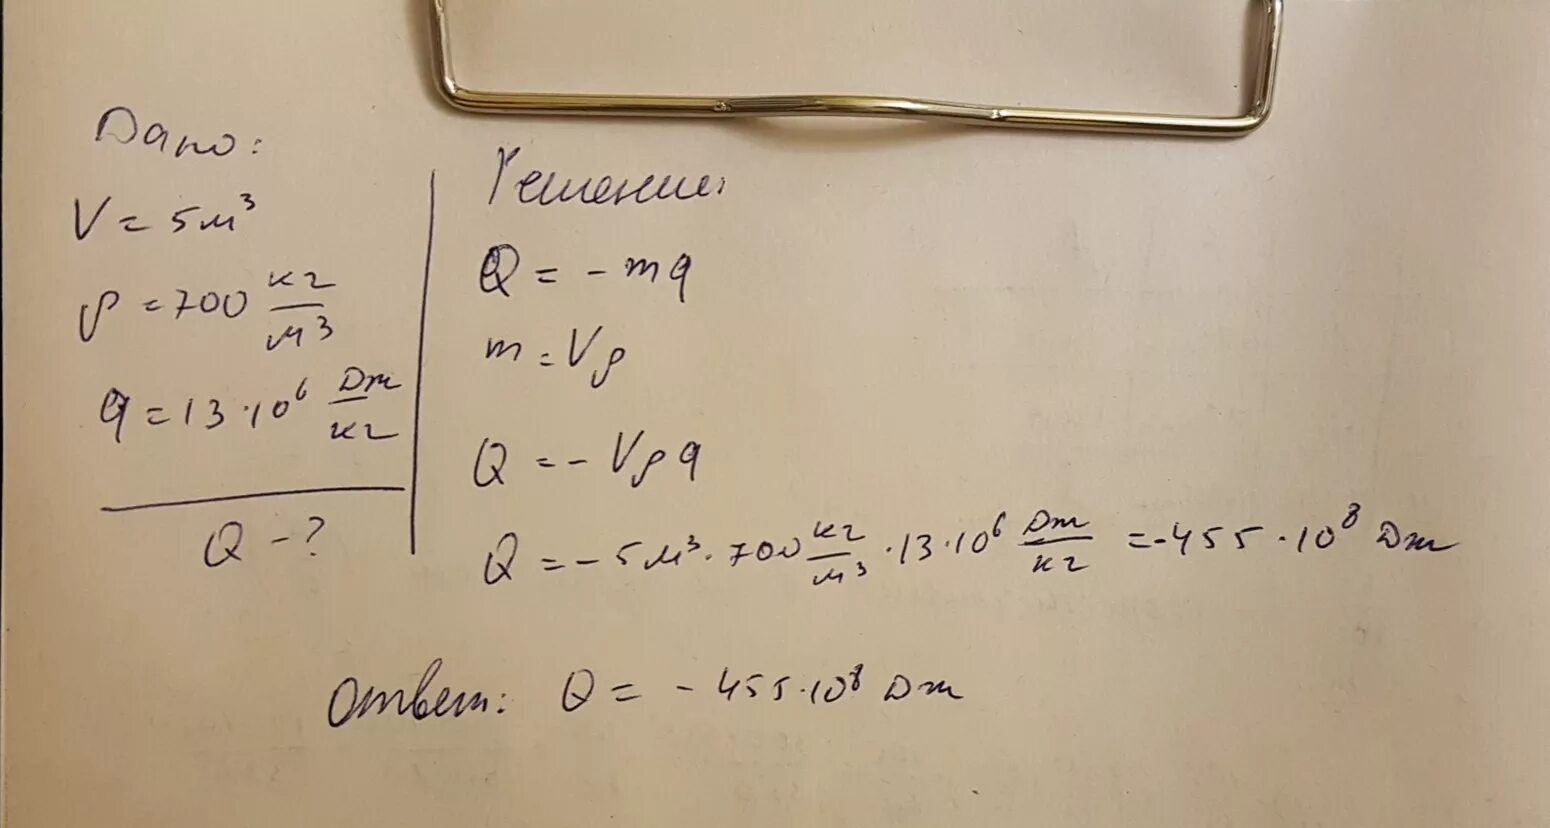 Дано:
V = 5 м³
ρ = 700 кг/м³
q = 13·10⁶ Дж/кг
Q - ?
Решение:
Q = - mq
m = Vρ
Q = - Vρq
Q = - 5м³ · 700 кг/м³ · 13·10⁶ Дж/кг = -455·10⁸ Дж
Ответ: Q = - 455·10⁸ Дж